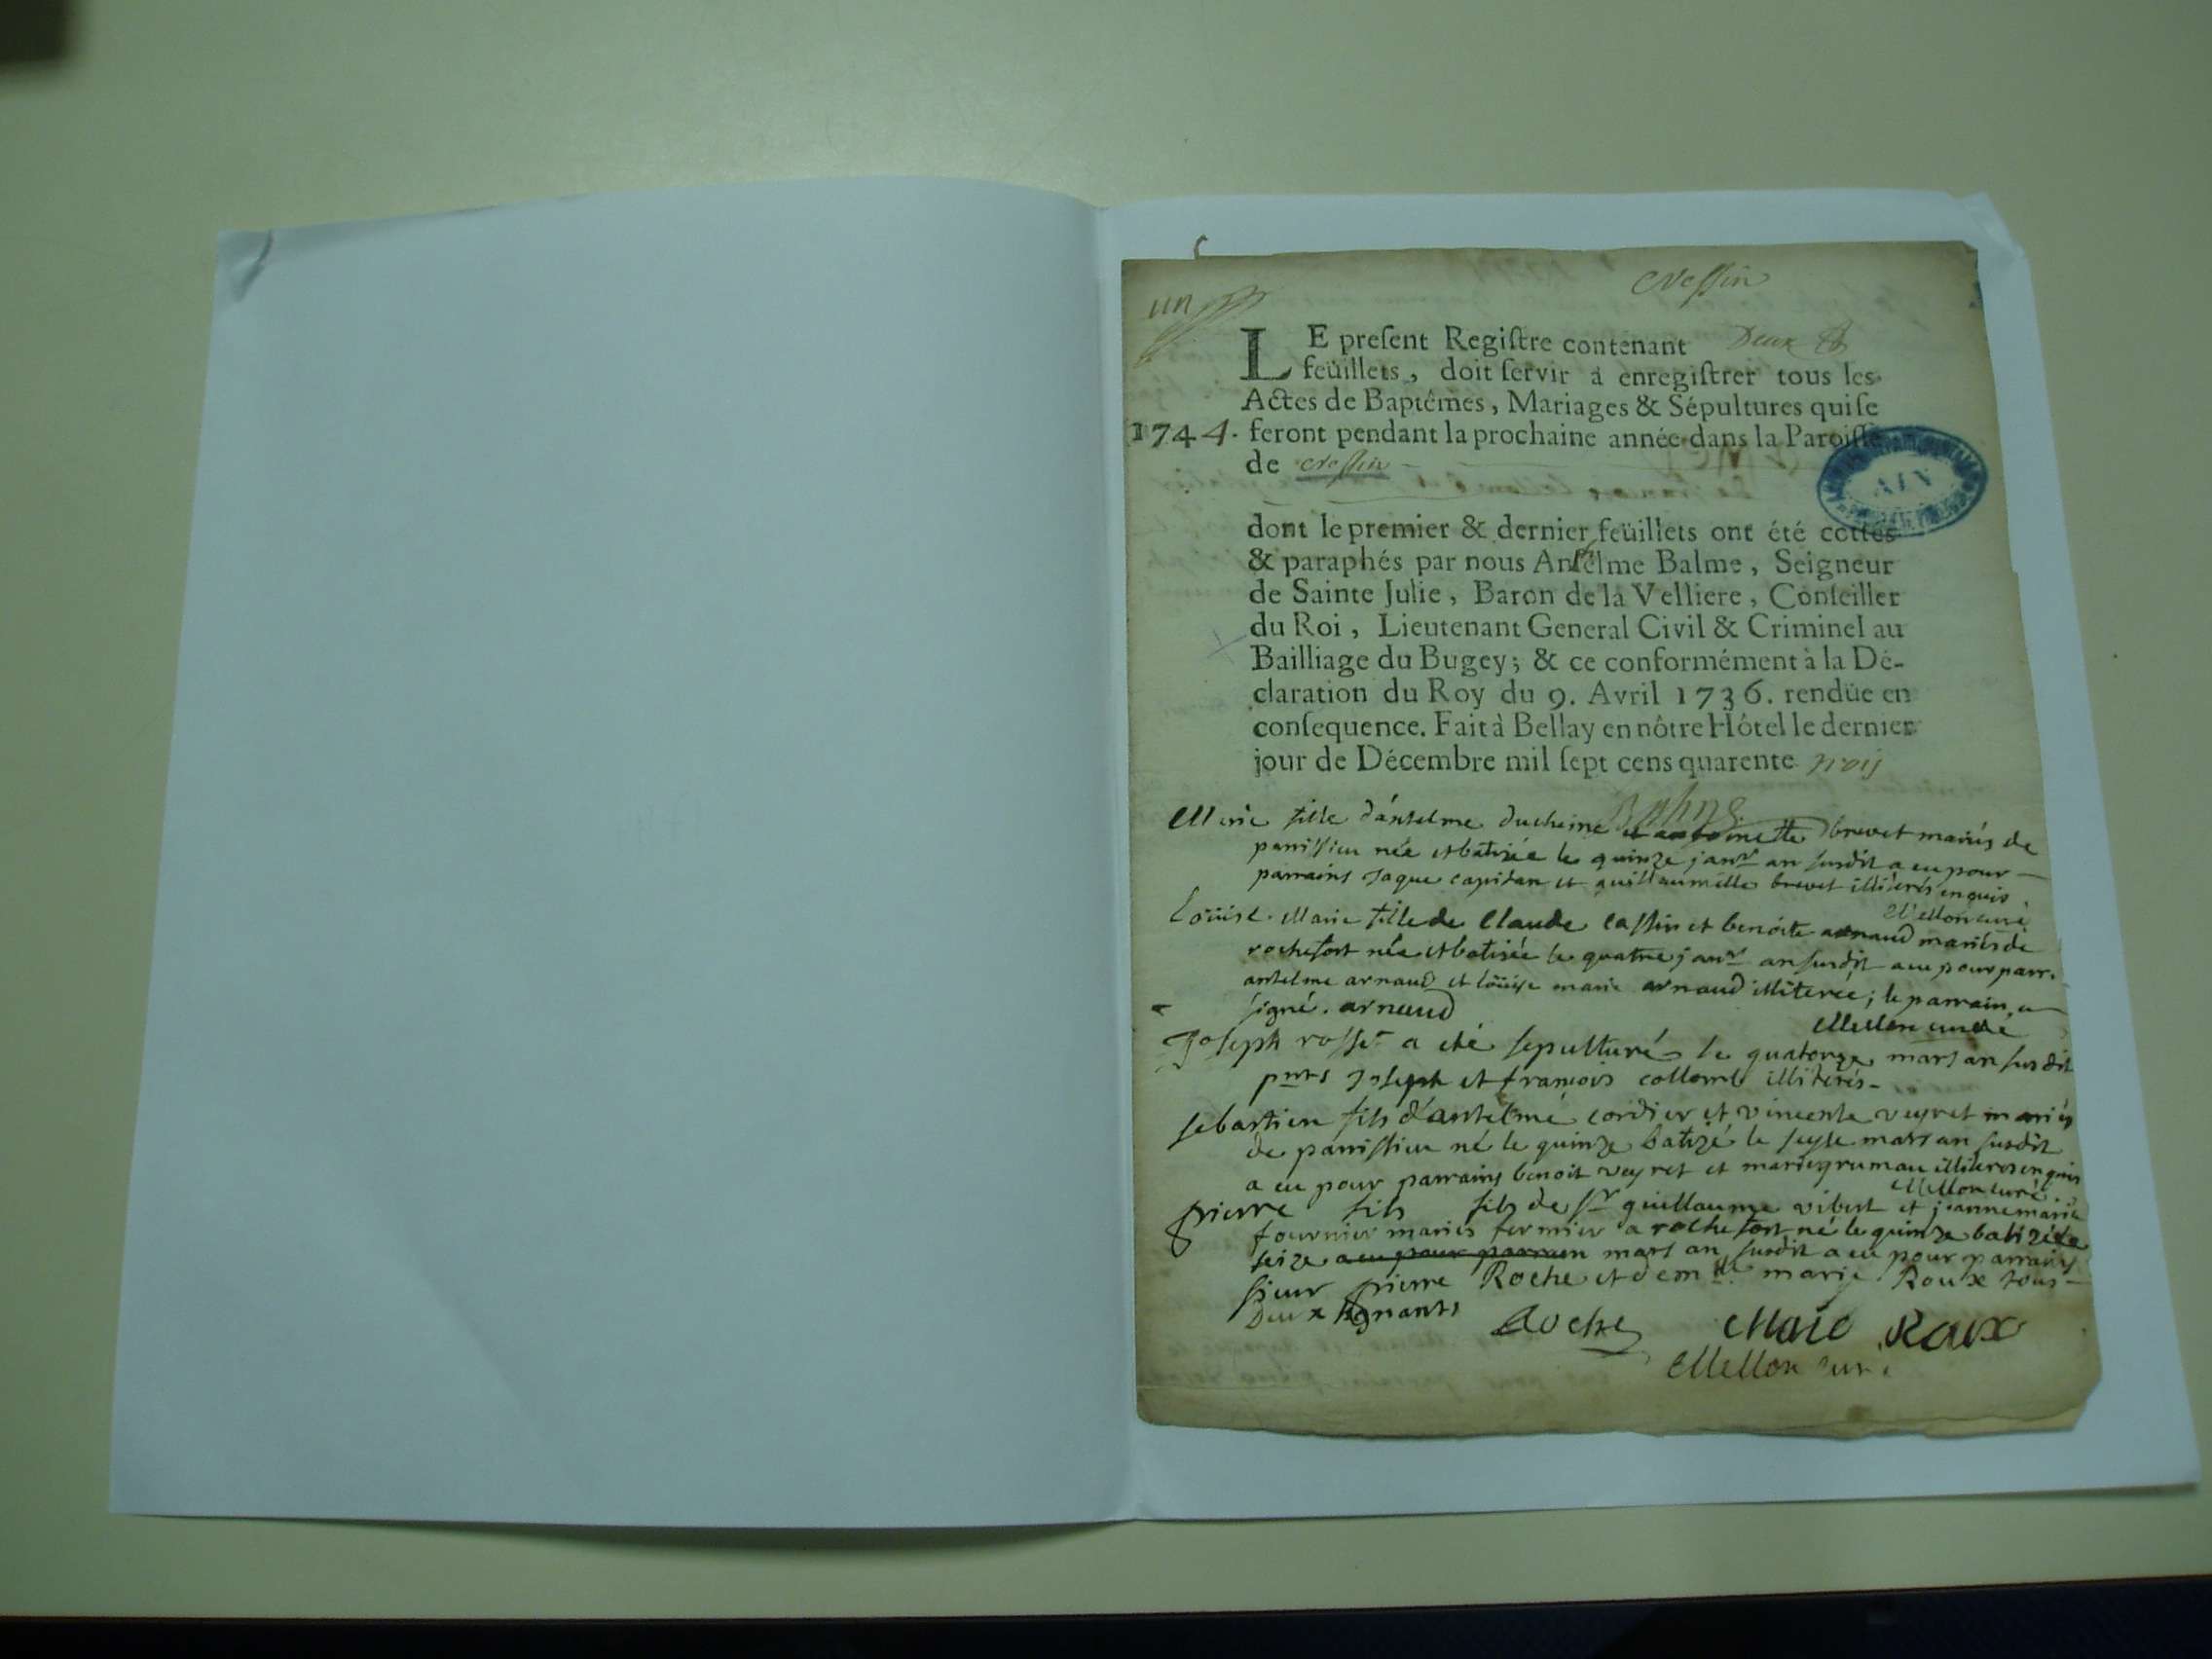 Cressin
un
LE present Registre contenant Deux
feüillets, doit servir à enregistrer tous les
Actes de Baptêmes, Mariages & Sépultures qui se
1744. feront pendant la prochaine année dans la Paroisse
de Cressin
AIN
dont le premier & dernier feüillets ont été cottés
& paraphés par nous Anthelme Balme, Seigneur
de Sainte Julie, Baron de la Velliere, Conseiller
du Roi, Lieutenant General Civil & Criminel au
Bailliage du Bugey; & ce conformément à la Dé-
claration du Roy du 9. Avril 1736. rendüe en
consequence. Fait à Bellay en nôtre Hôtel le dernier
jour de Décembre mil sept cens quarente trois
Balme
Marie fille d'antelme ducheine et antoinette brevet mariés de
parissieu née et batisée le quinze janvr an susdit a eu pour
parrains Jaque capitan et guillaumette brevet illiterés enquis
Mellon curé
Loüise Marie fille de Claude cassin et benoite arnaud mariés de
rochefort née et batisée le quatre janvr an susdit a eu pour parr.
antelme arnaud et loüise marie arnaud illiterée; le parrain a
signé. arnaud
Mellon curé
Joseph rosset a eté sepulturé le quatorze mars an susdit
pnts Joseph et francois collomb illiterés
sebastien fils d'antelme cordier et vincente veyret mariés
de parissieu né le quinze batizé le seyse mars an susdit
a eu pour parrains benoit veyret et marie gruman illiteres enquis
Mellon curé
pierre fils fils de sr guillaume vibert et jeanne marie
fournier mariés fermier a rochefort né le quinze batizé le
seize a eu pour parrain mars an susdit a eu pour parrains
sieur pierre Roche et demlle marie Roux tous
Deux signants
Roche Marie Roux
Mellon curé